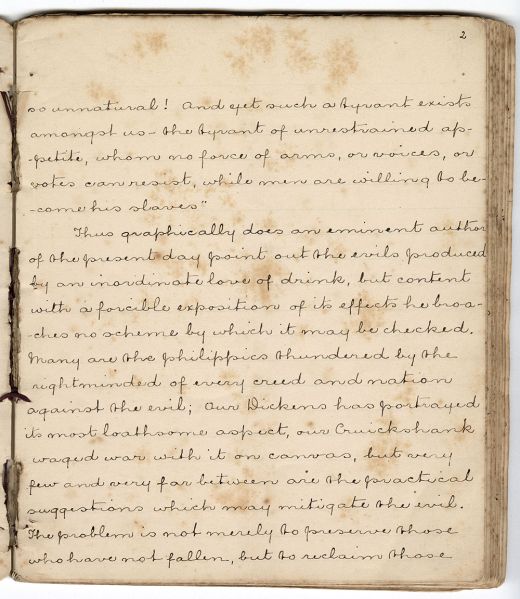 2
so unnatural! And yet such a tyrant exists
amongst us - the tyrant of unrestrained ap-
-petite, whom no force of arms, or voices, or
votes can resist, while men are willing to be-
-come his slaves"
Thus graphically does an eminent author
of the present day point out the evils produced
by an inordinate love of drink, but content
with a forcible exposition of its effects he broa-
-ches no scheme by which it may be checked.
Many are the philippics thundered by the
rightminded of every creed and nation
against the evil; Our Dickens has portrayed
its most loathsome aspect, our Cruickshank
waged war with it on canvas, but very
few and very far between are the practical
suggestions which may mitigate the evil.
The problem is not merely to preserve those
who have not fallen, but to reclaim those